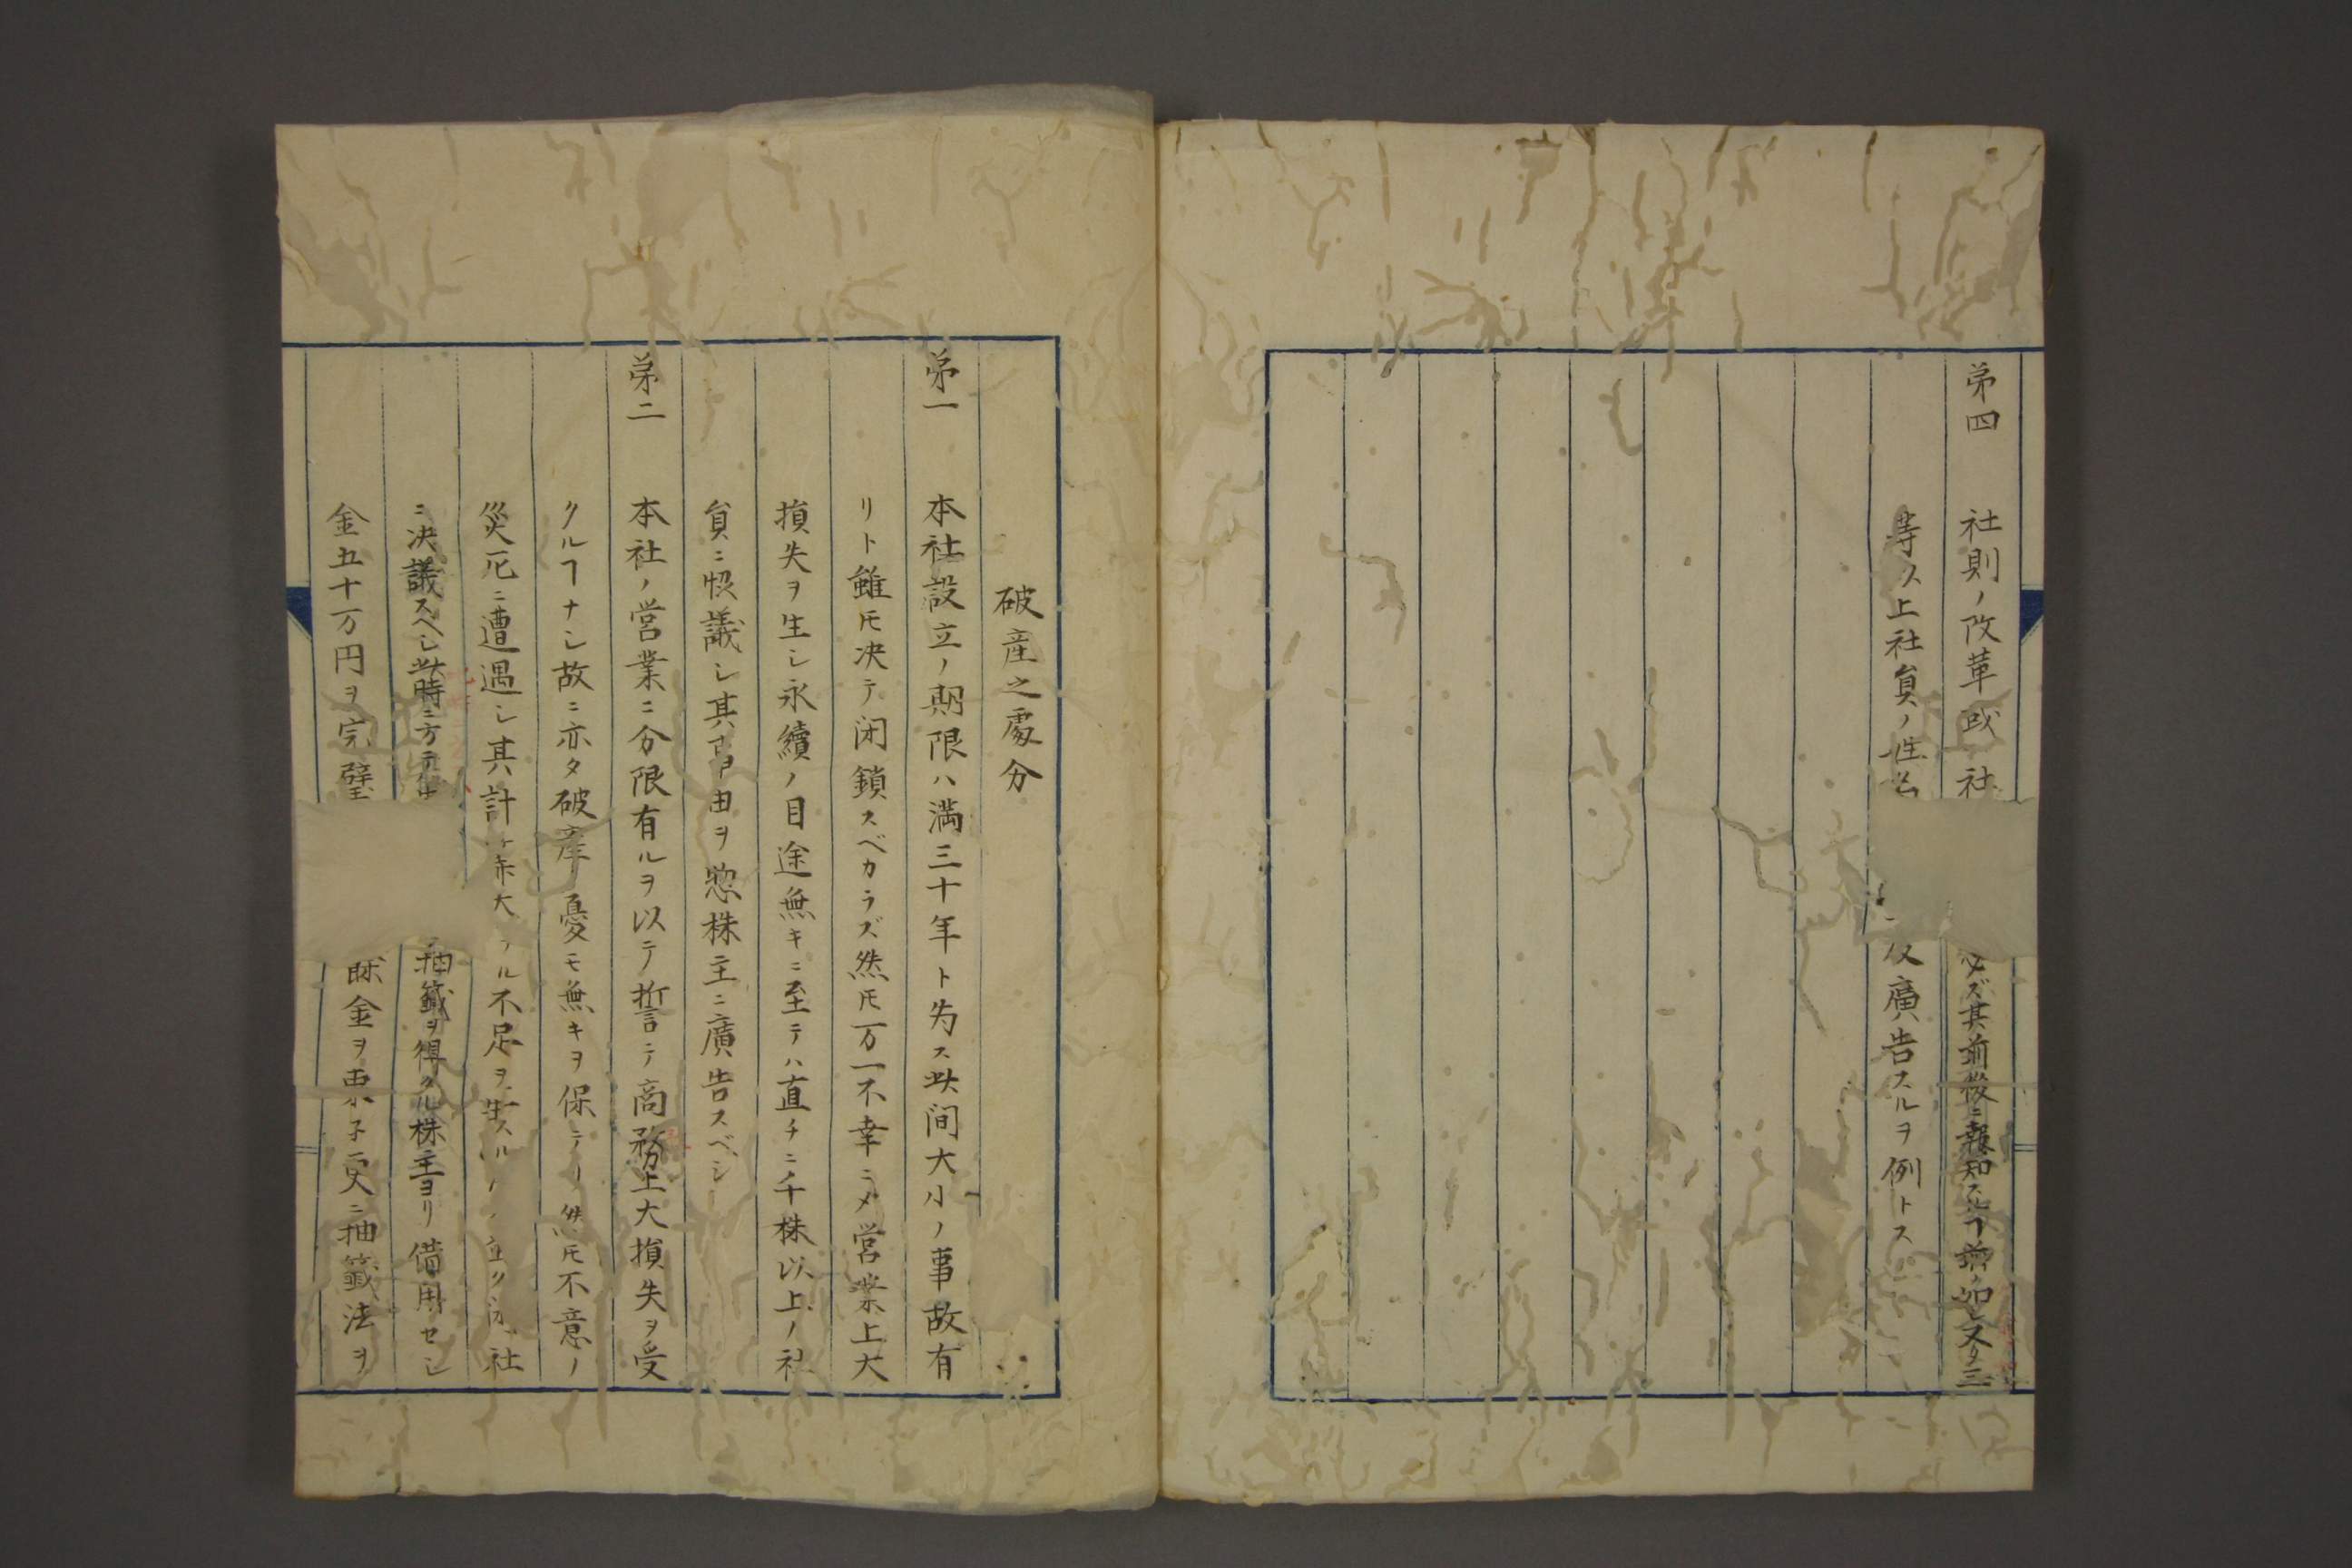 第四 社則ノ改革或社 必ズ其前後ニ報知スルヿ増ノ如シ又タ三
等以上社員ノ姓名 ニ及廣告スルヲ例トス
破産之處分
第一 本社設立ノ期限ハ満三十年ト為ス此间大小ノ事故有
リト雖𪜈决テ闭鎖スベカラズ然𪜈万一不幸ニ〆営業上大
損失ヲ生シ永續ノ目途無キニ至テハ直チニ千株以上ノ社
員ニ協議シ其 由ヲ惣株主ニ廣告スベシ
第二 本社ノ営業ニ分限有ルヲ以テ誓テ商務上大損失ヲ受
クルヿナシ故ニ亦タ破産ノ憂モ無キヲ保テリ然𪜈不意ノ
災厄ニ遭遇シ其計 大 ナル不足ヲ生スル 社
ニ决議スベシ此時ニ方テ 抽籤ヲ得タル株主ヨリ借用セシ
金五十万円ヲ完璧 金ヲ 更ニ抽籤法ヲ